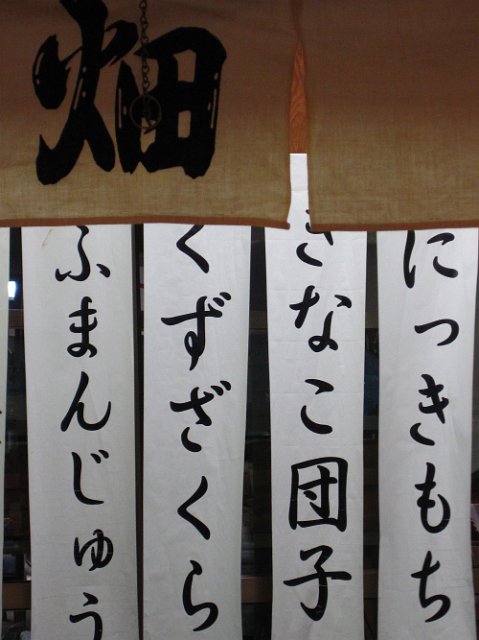 畑
にっきもち
きなこ団子
くずざくら
ふまんじゅう